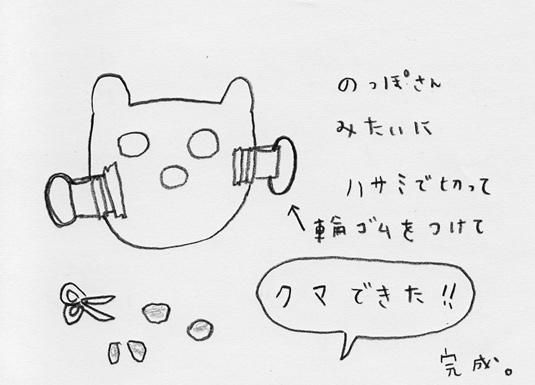 のっぽさん
みたいに
ハサミで切って
輪ゴムをつけて
クマできた!!
完成。